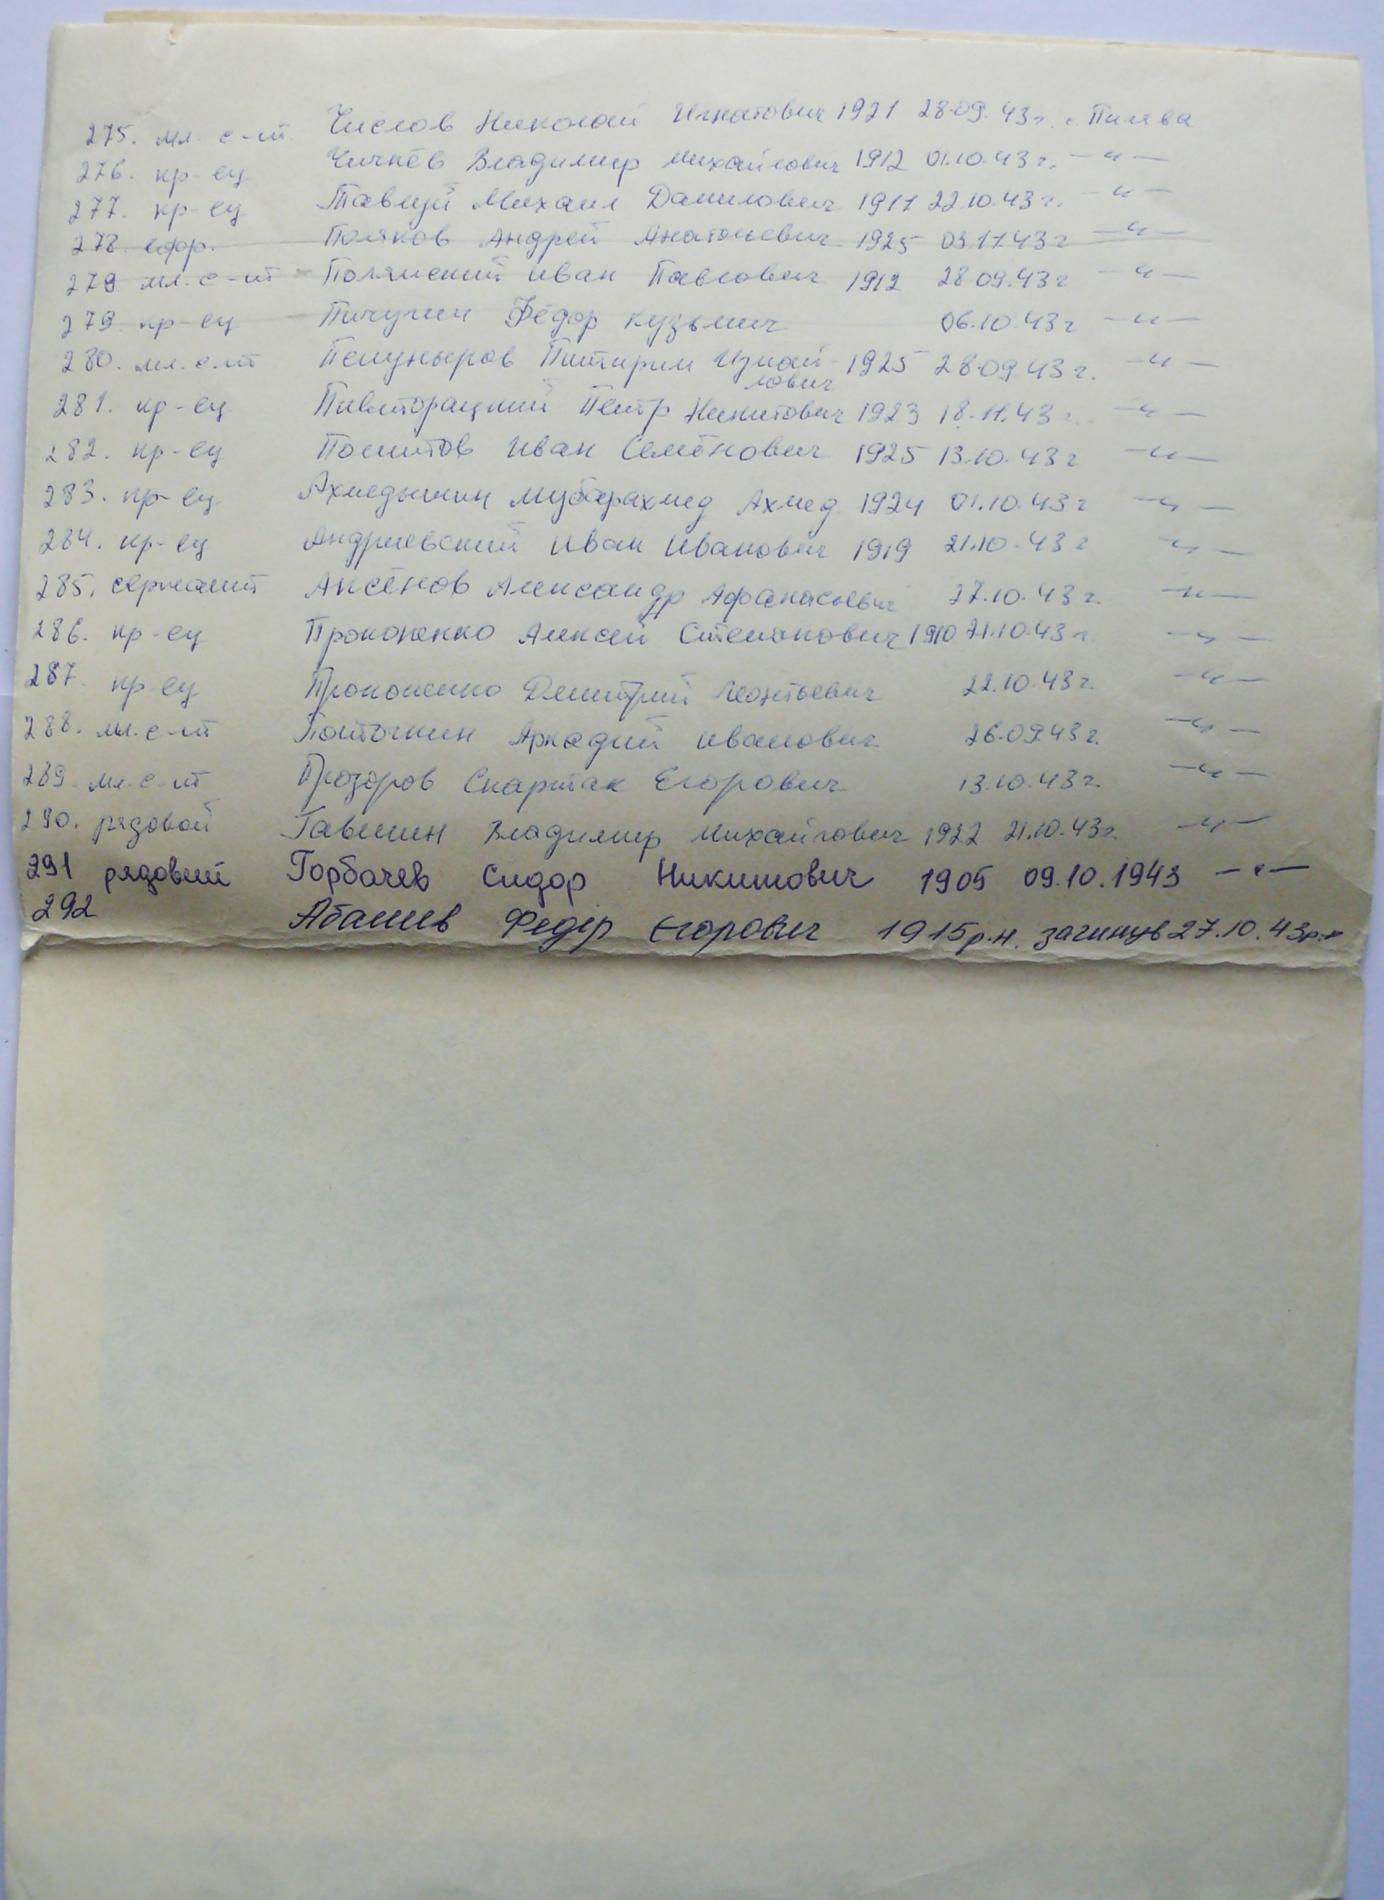 275. мл. с-т. Числов Николай Игнатович 1921 28.09.43г. с. Пилява
276. кр-ец Чичнёв Владимир Михайлович 1912 01.10.43г. —"—
277. кр-ец Михаил Данилович 1911 22.10.43г. —"—
278. ефр. Поляков Андрей Анатольевич 1925 03.11.43г —"—
279 мл. с-т Полянский Иван Павлович 1912 28.09.43г —"—
279. кр-ец Пичугин Фёдор Кузьмич 06.10.43г —"—
280. мл. с-т Питирим Измай- 1925 28.09.43г. —"—
лович
281. кр-ец Пивторацкий Петр Никитович 1923 18.11.43г. —"—
282. кр-ец Иван Семёнович 1925 13.10.43г —"—
283. кр-ец Мубарахмед Ахмед. 1924 01.10.43г —"—
284. кр-ец Андриевский Иван Иванович 1919 21.10.43г —"—
285. сержант Аксёнов Александр Афанасьевич 27.10.43г. —"—
286. кр-ец Прокопенко Алексей Степанович 1910 21.10.43г. —"—
287. кр-ец Прокопенко Дмитрий Леонтьевич 22.10.43г. —"—
288. мл. с-т Аркадий Иванович 26.09.43г. —"—
289. мл. с-т Прозоров Спартак Егорович 13.10.43г. —"—
290. рядовой Гавшин Владимир Михайлович 1922 21.10.43г. —"—
291 рядовий Горбачев Сидор Никитович 1905 09.10.1943 —"—
292 Абашев Федір Єгорович 1915р.н. загинув 27.10.43р.